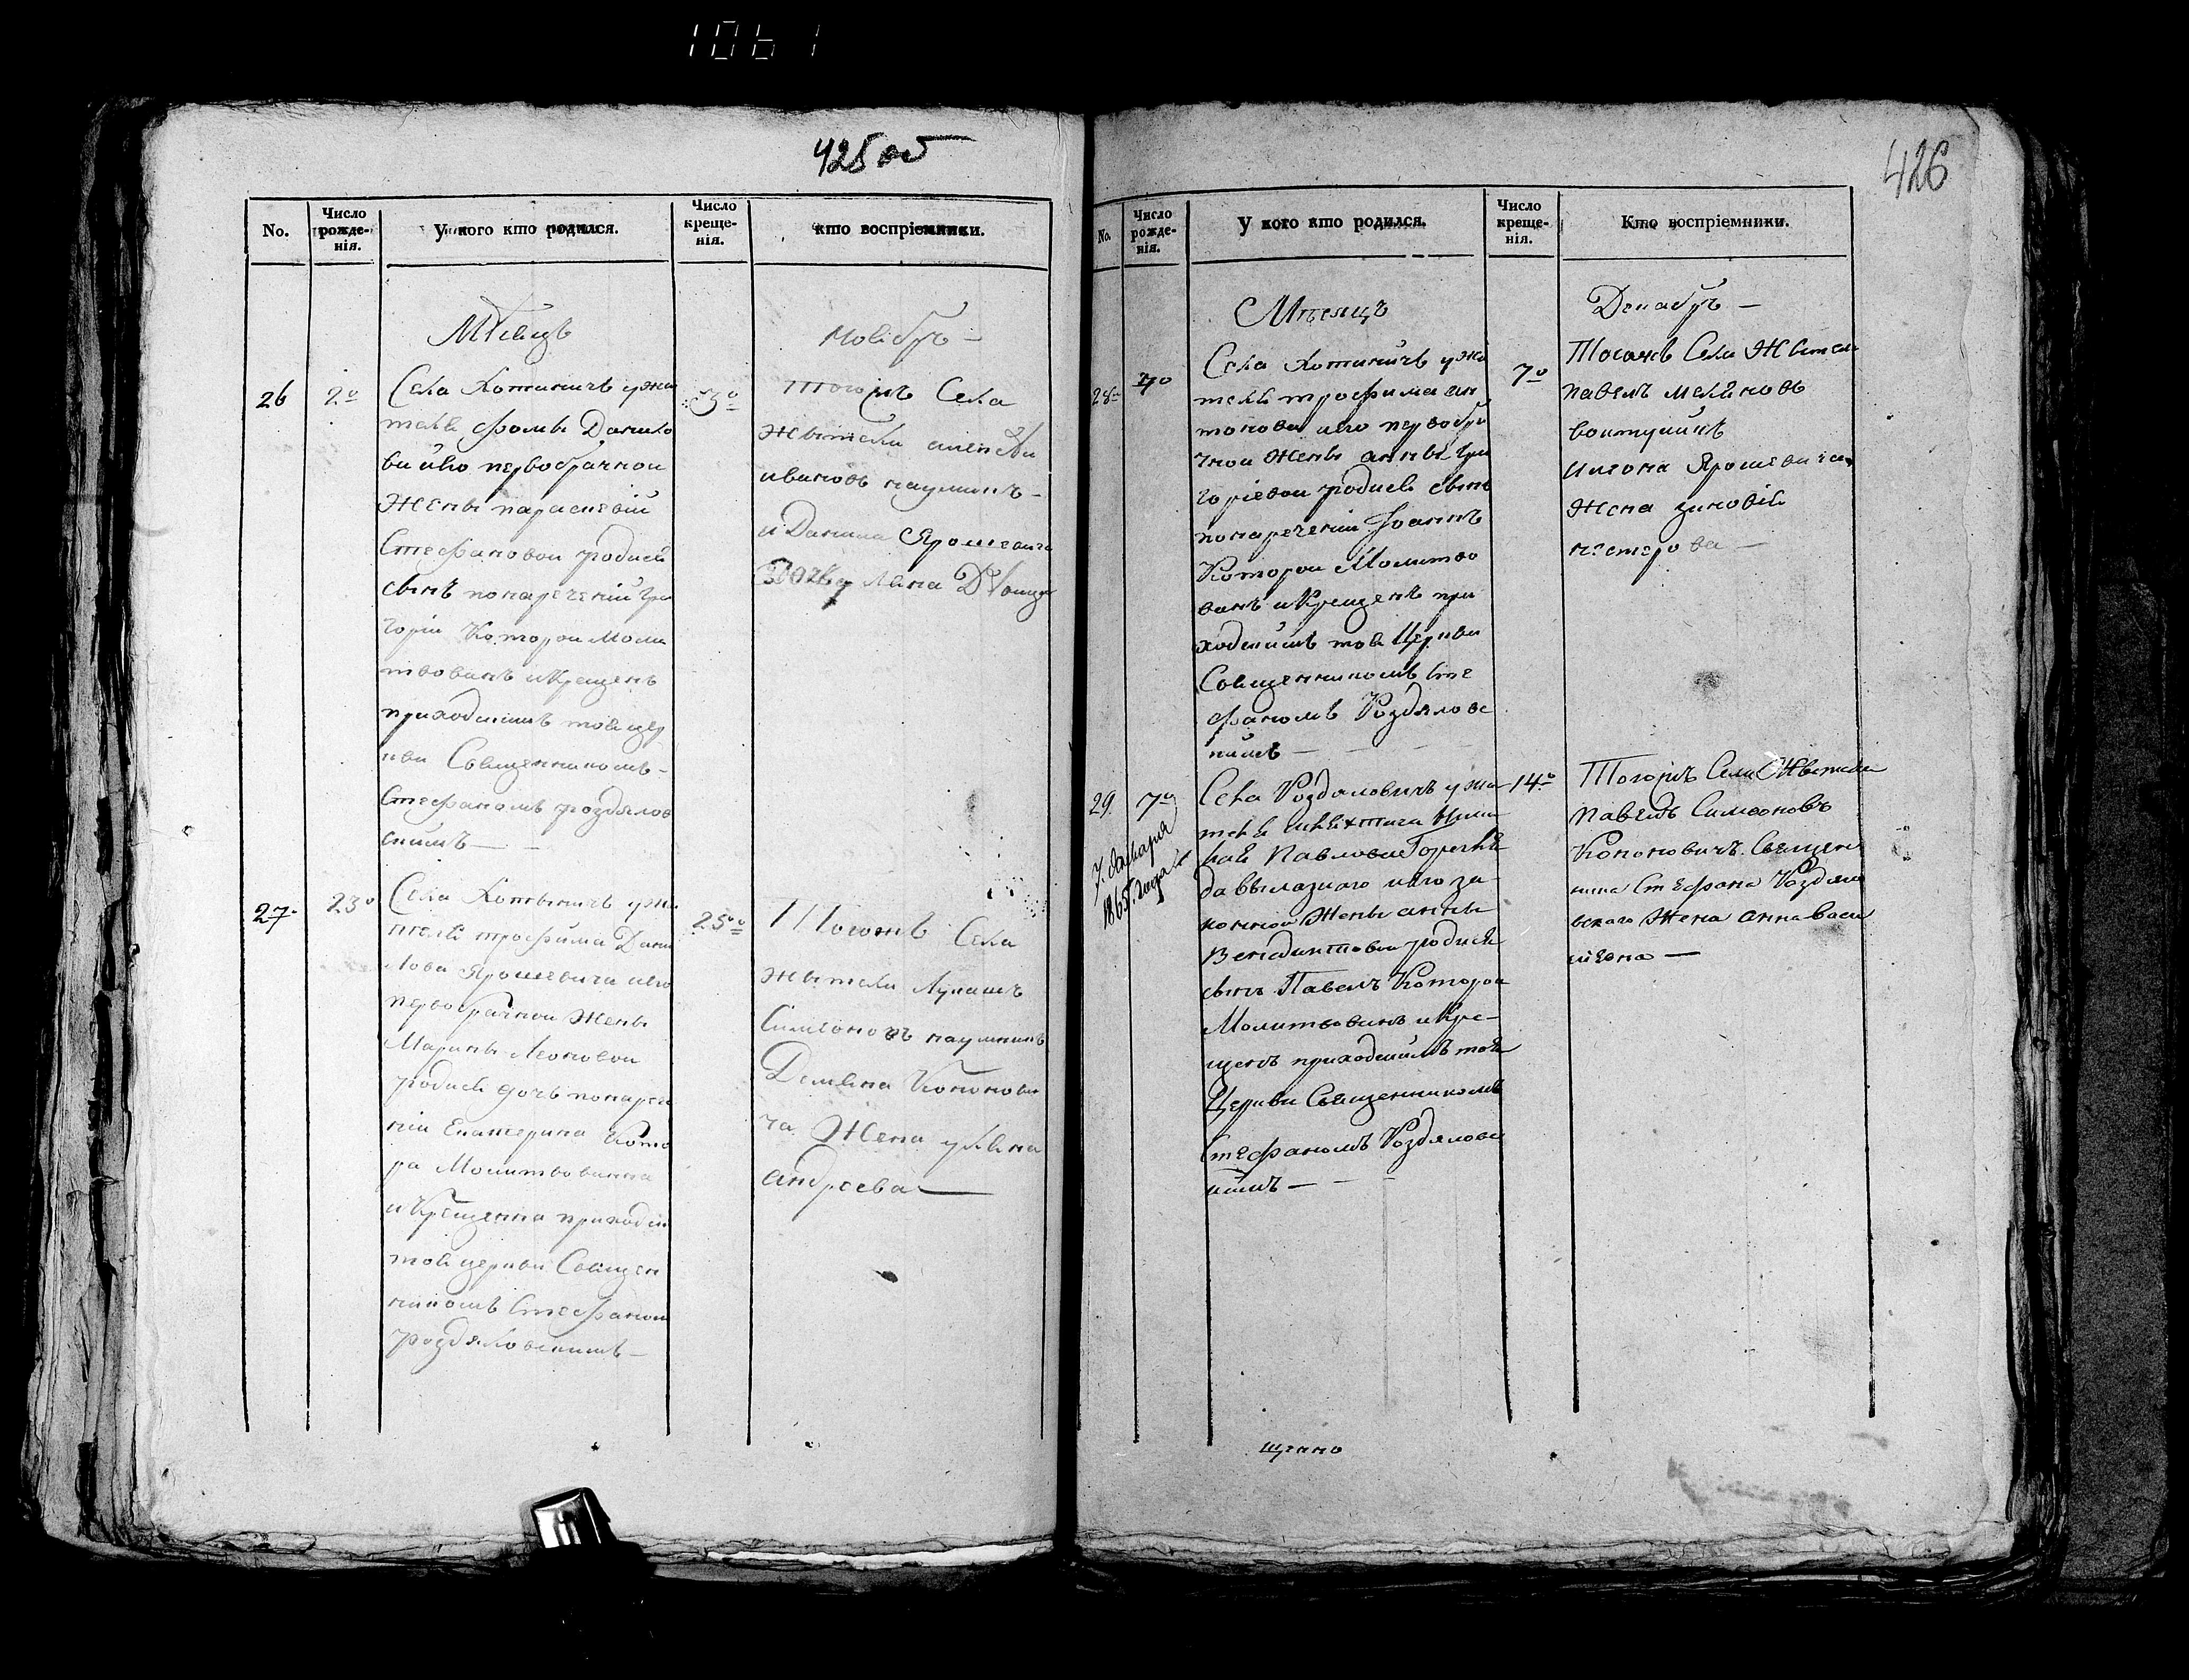 1061
425 об
No.
Число рожде-нія.
У кого кто родился.
Число креще-нія.
кто воспріемники.
Мѣсяцъ
Ноябрь —
26
2º
3º
Села Хотыничъ у жи
теля Фомы Данило
ва и его первобрачной
жены Параскевіи
Стефановой родился
сынъ по нареченіи Гри
горій который моли
твованъ и крещенъ
приходскимъ той цер
кви Священникомъ —
Стефаномъ Роздялов
скимъ —
Тогожъ Села
житель Алексѣй
Ивановъ Наумчикъ —
и Данила Ярошевича
27
23º
25º
Села Хотыничъ у жи
теля Трофима Дани
лова Ярошевича и его
первобрачной жены
Марины Леоновой
родися дочь по нарече
ніи Екатерина кото
ра Молитвованна
и Крещенна приходскимъ
той церкви Священ
никомъ Стефаномъ
Роздяловскимъ —
Тогожъ Села
житель Лукашъ
Симеоновъ Наумчикъ
Демьяна Кононови
ча жена Ульяна
Андреева —
426
No.
Число рожде-нія.
У кого кто родился.
Число креще-нія.
Кто воспріемники.
Мѣсяцъ
Декабрь —
28
4º
7º
Села Хотыничъ у жи
теля Трофима Ан
тонова и его первобра
чной жены Анны Гри
горіевой родися сынъ
по нареченіи Іоаннъ
который Молитво
ванъ и Крещенъ при
ходскимъ той Церкви
Священникомъ Сте
фаномъ Роздяловс
кимъ —
Тогожъ Села Житель
Павелъ
Жена Зиновія
Нестерова —
29.
7º
14º
7. Января
1865. года
Села Роздяловичъ у жи
Павлова
законной Жены Анны
Венедиктовой родися
сынъ Павелъ который
Молитвованъ и Кре-
щенъ приходскимъ той
Церкви Священникомъ
Стефаномъ Роздяловс
кимъ —
Тогожъ Села Житель
Павелъ Симеоновъ
Кононовичъ Священ
ника Стефана Роздяло
вскаго Жена Анна Васи
ліевна —
щенно